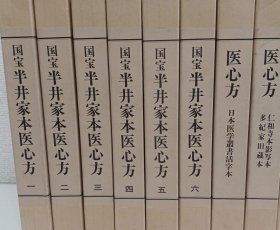 国宝 半井家本医心方 一
国宝 半井家本医心方 二
国宝 半井家本医心方 三
国宝 半井家本医心方 四
国宝 半井家本医心方 五
国宝 半井家本医心方 六
医心方 日本医学叢書活字本
医心方 仁和寺本影写本
多紀家旧蔵本